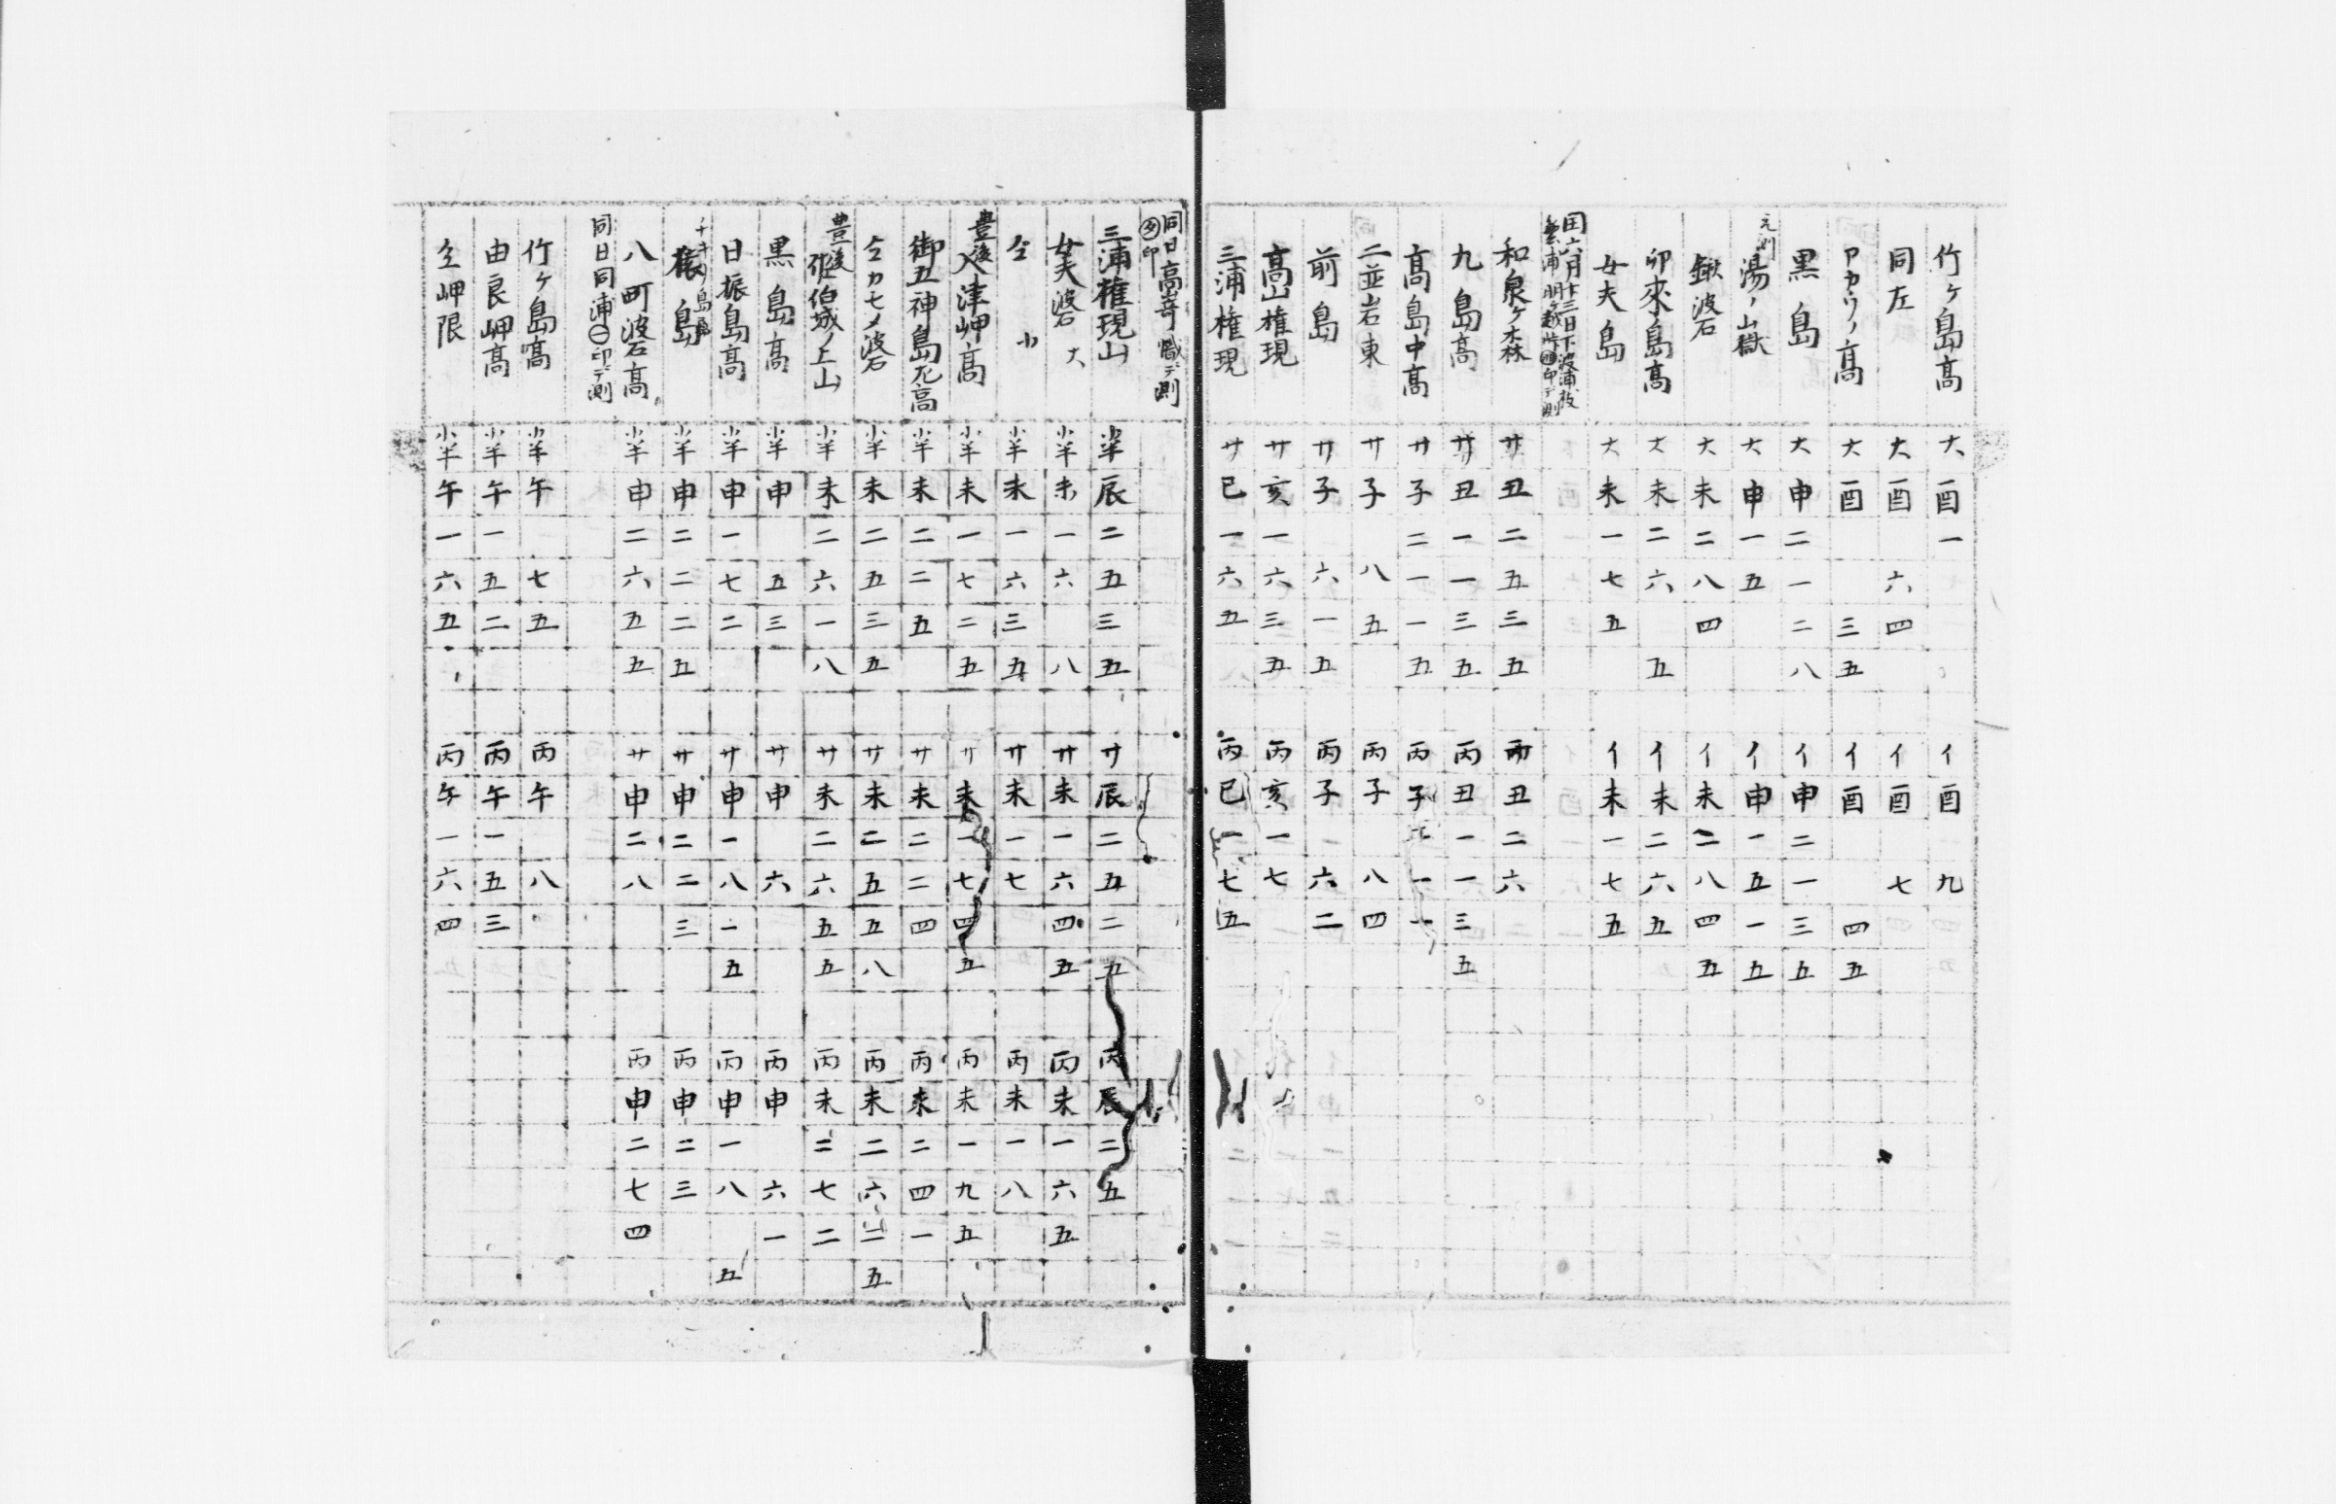 竹ヶ島高 大酉一 イ酉 九
同左 大酉 六四 イ酉 七
アカウノ高 大酉 三五 イ酉 四五
黒島 大申二一二八 イ申二一三五
湯ノ山嶽 大申一五 イ申一五一五
鍬波石 大未二八四 イ未二八四五
卯來ノ島高 大未二六 五 イ未二六五
女夫島 大未一七五 イ未一七五
和泉ヶ森 サ丑二五三五 丙丑二六
九島高 サ丑一一三五 丙丑一一三五
高島中高 サ子二一一五 丙子二一一
二並岩東 サ子 八五 丙子 八四
前島 サ子 六一五 丙子 六二
高山権現 サ亥一六三五 丙亥一七
三浦権現 サ巳一六五 丙巳一七五
同日高嵜 幟デ測
印
三浦権現山 小半辰二五三五 サ辰二五二五 丙辰二五
女夫碆 大 小半未一六 八 サ未一六四五 丙未一六五
仝 小 小半未一六三五 サ未一七 丙未一八
豊後入津岬高 小半未一七二五 サ未一七四五 丙未一九五
御五神島尤高 小半未二二五 サ未二二四 丙未二四一
仝カモメ碆 小半未二五三五 サ未二五五八 丙未二六二五
豊後佐伯城ノ上山 小半未二六一八 サ未二六五五 丙未二七二
黒島高 小半申 五三 サ申 六 丙申 六一
日振島高 小半申一七二 サ申一八一五 丙申一八 五
猿島 小半申二二二五 サ申二二三 丙申二三
八町碆高 小半申二六五五 サ申二八 丙申二七四
同日同浦㊀印デ測
竹ヶ島高 小半午 七五 丙午 八
由良岬高 小半午一五二 丙午一五三
仝岬限 小半午一六五 丙午一六四